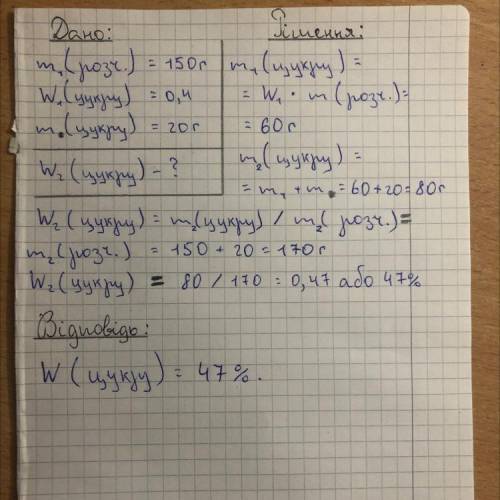 Дано:
m₁(розч.) = 150г
W₁(цукру) = 0,4
m(цукру) = 20г
W₂(цукру) - ?
Рішення:
m₁(цукру) =
= W₁ · m(розч.) =
= 60г
m₂(цукру) =
= m₁ + m = 60 + 20 = 80г
W₂(цукру) = m₂(цукру) / m₂(розч.) =
m₂(розч.) = 150 + 20 = 170г
W₂(цукру) = 80 / 170 = 0,47 або 47%
Відповідь:
W(цукру) = 47%.